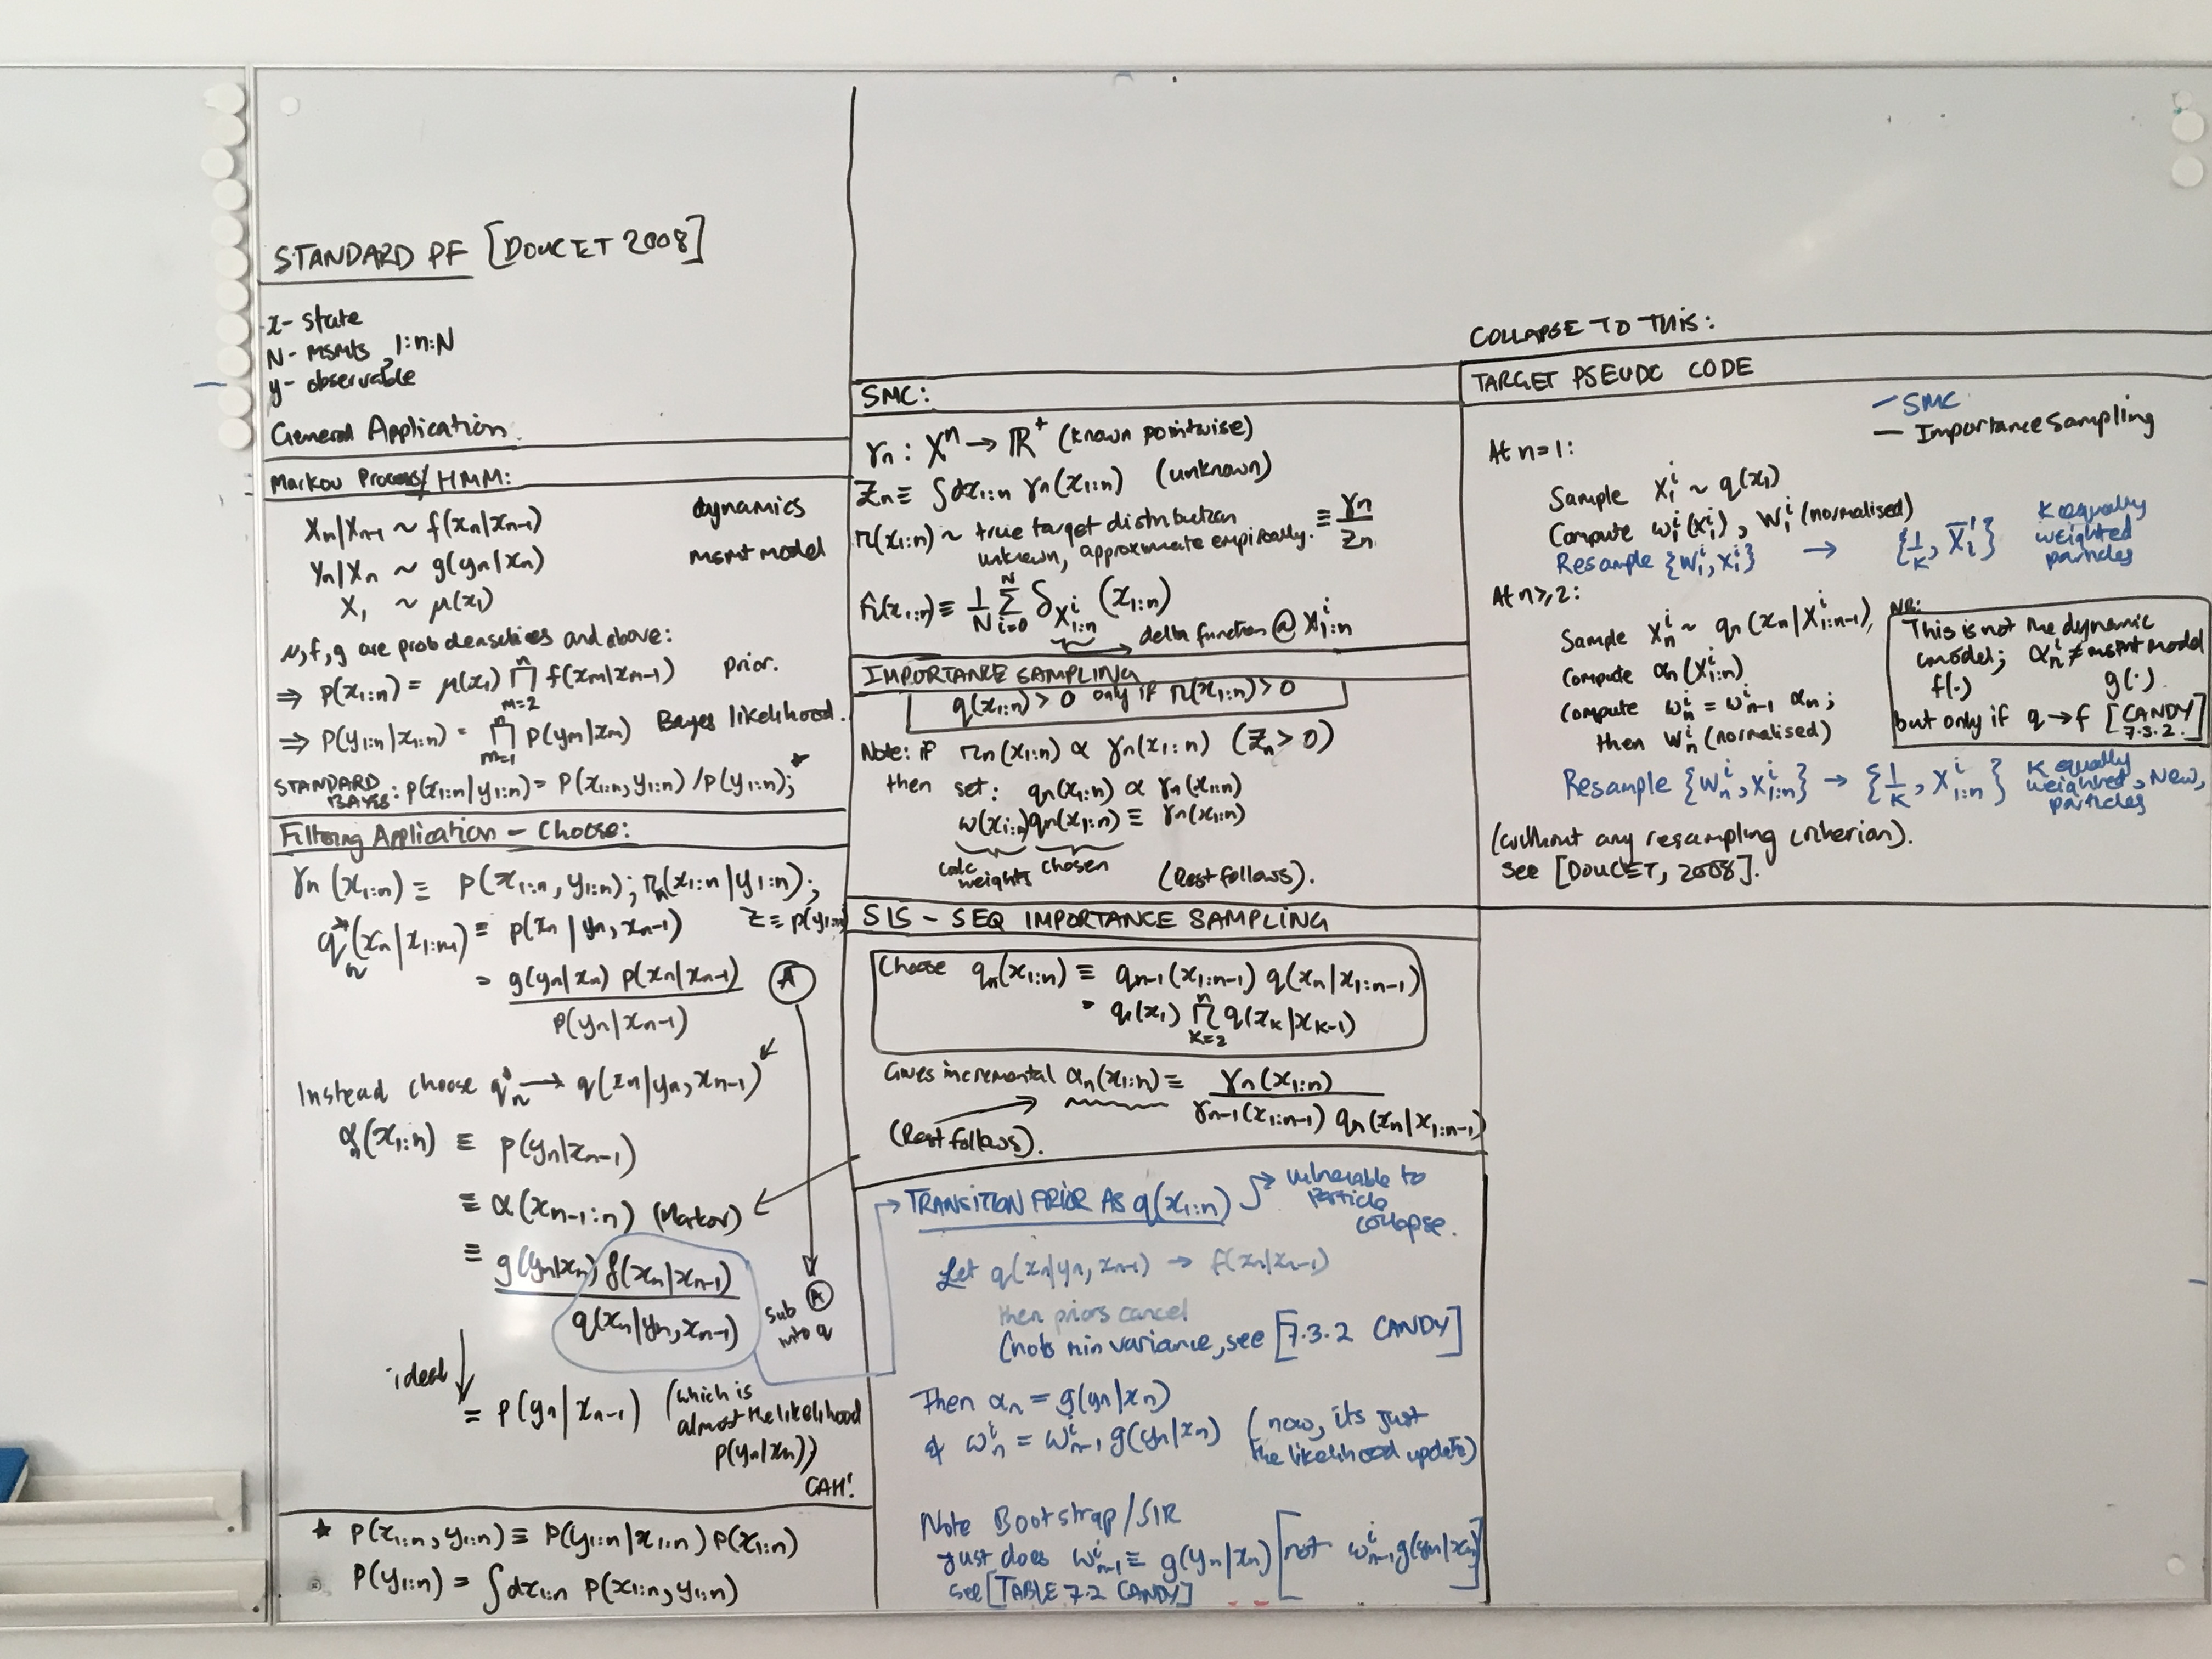 STANDARD PF [DOUCET 2008]
x- state
N- msmts, 1:n:N
y- observable
General Application.
Markov Process/HMM:
Xn|Xn-1 ~ f(xn|xn-1) dynamics
Yn|Xn ~ g(yn|xn) msmt model
X1 ~ μ(x1)
μ,f,g are prob densities and above:
⇒ p(x1:n) = μ(x1) ∏_{m=2}^{n} f(xm|xm-1) prior.
⇒ p(y1:n|x1:n) = ∏_{m=1}^{n} p(ym|xm) Bayes likelihood.
STANDARD BAYES: p(x1:n|y1:n) = p(x1:n,y1:n)/p(y1:n);*
Filtering Application - Choose:
γn(x1:n) ≡ p(x1:n,y1:n); πn(x1:n|y1:n);
Z ≡ p(y1:n)
q*n(xn|x1:n-1) ≡ p(xn|yn,xn-1)
= g(yn|xn) p(xn|xn-1) / p(yn|xn-1) (A)
Instead choose q*n → q(xn|yn,xn-1)
αn(x1:n) ≡ p(yn|xn-1)
≡ α(xn-1:n) (Markov)
≡ g(yn|xn) f(xn|xn-1) / q(xn|yn,xn-1)
sub (A)
into q
ideal
= p(yn|xn-1) (which is
almost the likelihood
p(yn|xn))
GAH!
★ p(x1:n,y1:n) ≡ p(y1:n|x1:n) p(x1:n)
p(y1:n) = ∫dx1:n p(x1:n,y1:n)
SMC:
γn : X^n → ℝ+ (known pointwise)
Zn ≡ ∫dx1:n γn(x1:n) (unknown)
π(x1:n) ~ true target distribution ≡ γn/Zn
unknown, approximate empirically.
π̂(x1:n) ≡ 1/N Σ_{i=0}^{N} δ_{X^i_{1:n}} (x1:n)
→ delta function @ X^i_{1:n}
IMPORTANCE SAMPLING
q(x1:n) > 0 only if π(x1:n) > 0
Note: if πn(x1:n) ∝ γn(x1:n) (Zn > 0)
then set: qn(x1:n) ∝ γn(x1:n)
w(x1:n)qn(x1:n) ≡ γn(x1:n)
calc weights chosen
(Rest follows).
SIS - SEQ IMPORTANCE SAMPLING
Choose qn(x1:n) ≡ qn-1(x1:n-1) q(xn|x1:n-1)
= q1(x1) ∏_{k=2}^{n} q(xk|xk-1)
Gives incremental αn(x1:n) ≡ γn(x1:n) / γn-1(x1:n-1) qn(xn|x1:n-1)
(Rest follows).
TRANSITION PRIOR AS q(x1:n) → vulnerable to
particle
collapse.
Let q(xn|yn,xn-1) → f(xn|xn-1)
then priors cancel
(nots min variance, see [7.3.2 CANDY]
Then αn = g(yn|xn)
& w^i_n = w^i_{n-1} g(yn|xn) (now, its just
the likelihood update)
Note Bootstrap/SIR
just does w^i_{n-1} ≡ g(yn|xn) [not w^i_{n-1} g(yn|xn)]
see [TABLE 7.2 CANDY]
COLLAPSE TO THIS:
TARGET PSEUDO CODE
— SMC
— Importance Sampling
At n=1:
Sample X^i_1 ~ q(x1)
Compute w^i_1(x^i_1), W^i_1 (normalised)
Resample {W^i_1, X^i_1} → {1/K, X̄^i_1} K equally
weighted
particles
At n≥2:
Sample X^i_n ~ qn(xn|X^i_{1:n-1}),
Compute αn(X^i_{1:n})
Compute w^i_n = w^i_{n-1} αn;
then W^i_n (normalised)
NB:
This is not the dynamic
model; α^i_n ≠ msmt model
f(·) g(·)
but only if q → f [CANDY 7.3.2]
Resample {W^i_n, X^i_{1:n}} → {1/K, X^i_{1:n}} K equally
weighted, New,
particles
(without any resampling criterion).
see [DOUCET, 2008].